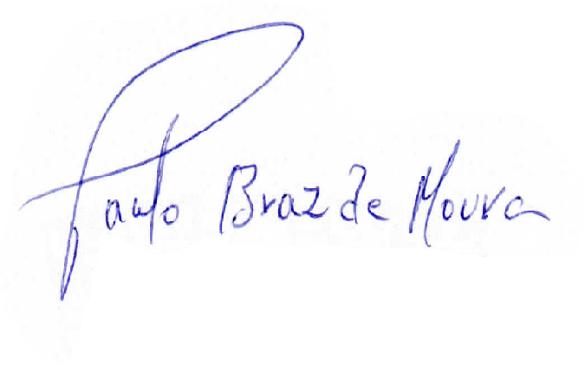 Paulo Braz de Moura